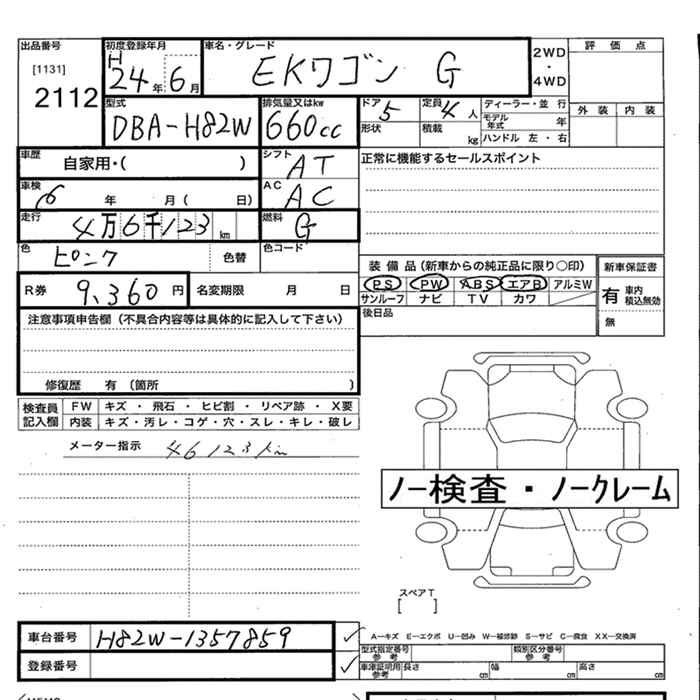 出品番号 初度登録年月 車名・グレード 評価点
[1131] H 2WD
2112 24年 6月 EKワゴン G ・
4WD
型式 排気量又はkw ドア 定員 ディーラー・並行 外装 内装
DBA-H82W 660cc 5 4人 モデル年式 年
形状 積載 kg ハンドル 左・右
車歴 自家用・( ) シフト AT 正常に機能するセールスポイント
車検 6 年 月( 日) AC AC
走行 4万6千123km 燃料 G
色 ピンク 色替 色コード
装備品(新車からの純正品に限り○印) 新車保証書
R券 9,360円 名変期限 月 日 PS PW ABS エアB アルミW 有 車内積込無効
サンルーフ ナビ TV カワ
注意事項申告欄(不具合内容等は具体的に記入して下さい) 後日品 無
修復歴 有(箇所 )
検査員記入欄 FW キズ・飛石・ヒビ割・リペア跡・X要
内装 キズ・汚レ・コゲ・穴・スレ・キレ・破レ
メーター指示 46123km
ノー検査・ノークレーム
スペアT
[ ]
車台番号 H82W-1357859 A―キズ E―エクボ U―凹み W―補修跡 S―サビ C―腐食 XX―交換済
型式指定番号 参考 類別区分番号 参考
登録番号 車庫証明用 参考 長さ cm 幅 cm 高さ cm